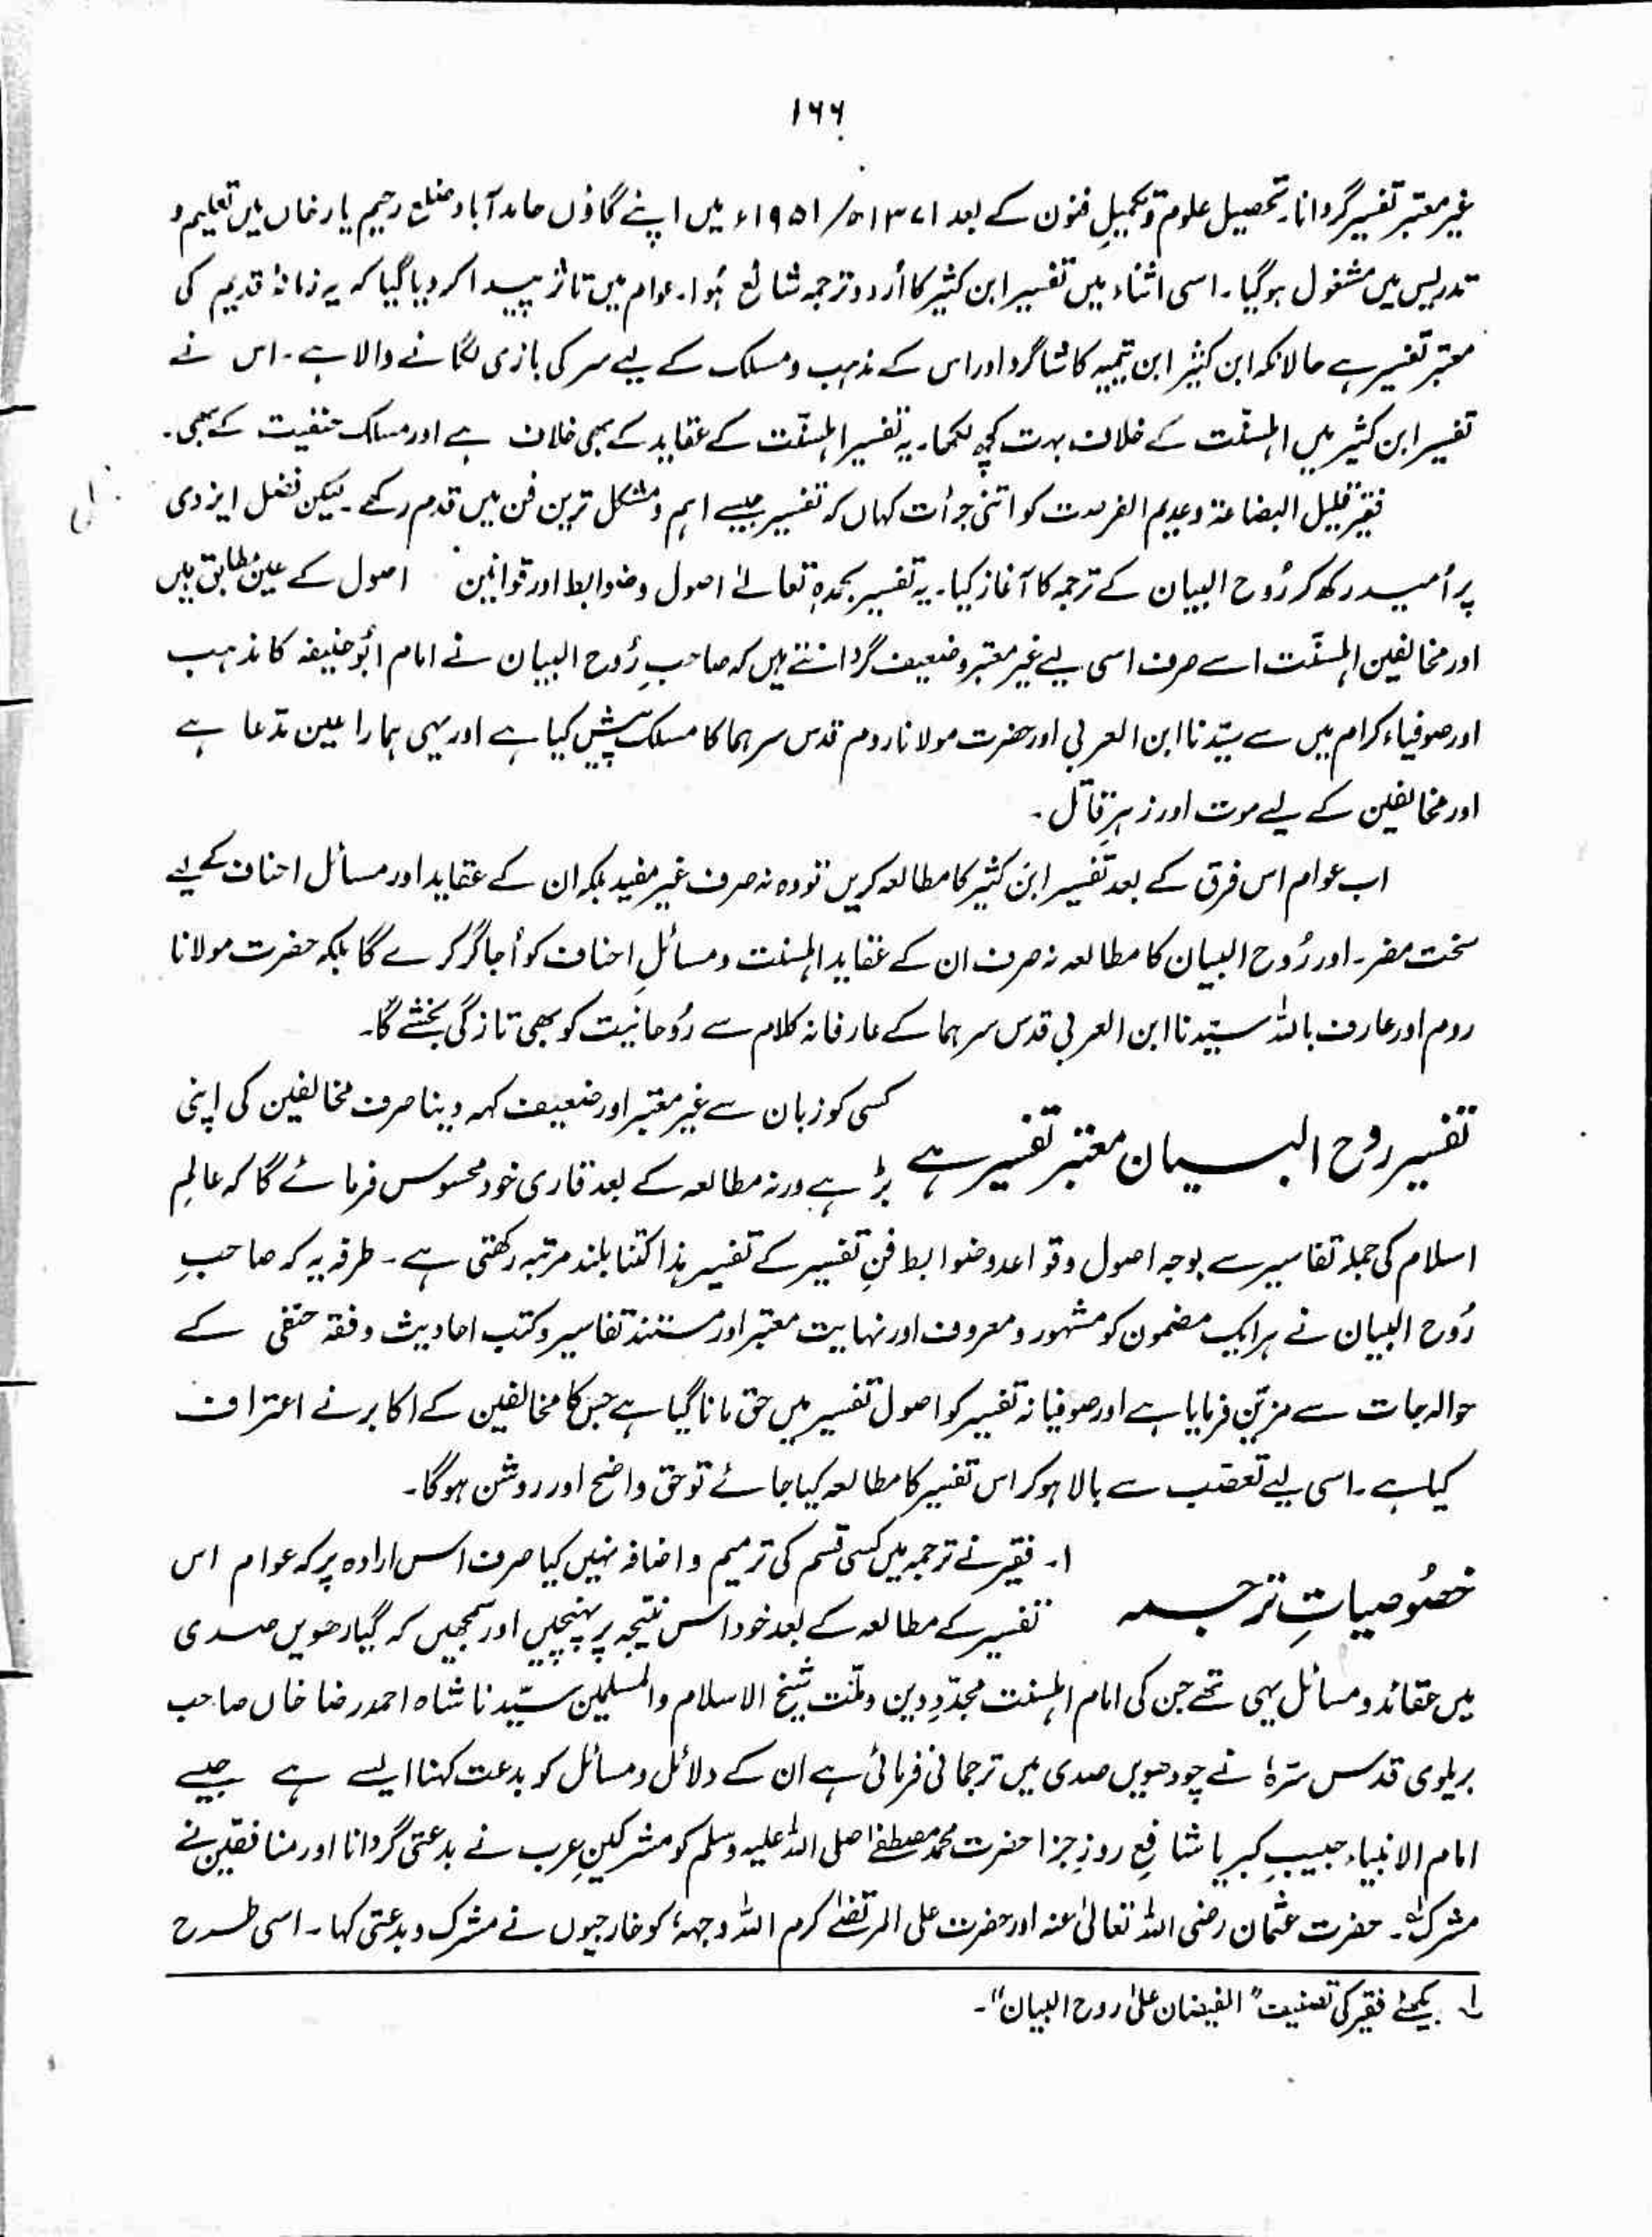 ۱۶۶
غیر معتبر تفسیر گردانا۔ تحصیل علوم و تکمیلِ فنون کے بعد ۱۳۷۱ھ/۱۹۵۱ء میں اپنے گاؤں حامد آباد ضلع رحیم یار خاں میں تعلیم و
تدریس میں مشغول ہوگیا۔ اسی اثناء میں تفسیر ابن کثیر کا اُردو ترجمہ شائع ہُوا۔ عوام میں تاثر پیدا کر دیا گیا کہ یہ زمانۂ قدیم کی
معتبر تفسیر ہے حالانکہ ابن کثیر ابن تیمیہ کا شاگرد اور اس کے مذہب و مسلک کے لیے سر کی بازی لگانے والا ہے۔ اس نے
تفسیر ابن کثیر میں اہلسنّت کے خلاف بہت کچھ لکھا۔ یہ تفسیر اہلسنّت کے عقاید کے بھی خلاف ہے اور مسلک حنفیت کے بھی۔
فقیر قلیل البضاعۃ و عدیم الفرصت کو اتنی جرأت کہاں کہ تفسیر جیسے اہم و مشکل ترین فن میں قدم رکھے۔ لیکن فضل ایزدی
پر اُمید رکھ کر رُوح البیان کے ترجمہ کا آغاز کیا۔ یہ تفسیر بحمدہٖ تعالےٰ اصول و ضوابط اور قوانین اصول کے عین مطابق ہیں
اور مخالفین اہلسنّت اسے صرف اسی لیے غیر معتبر و ضعیف گردانتے ہیں کہ صاحبِ رُوح البیان نے امام ابُوحنیفہ کا مذہب
اور صوفیاء کرام میں سے سیّدنا ابن العربی اور حضرت مولانا روم قدس سرہما کا مسلک پیش کیا ہے اور یہی ہمارا عین مدّعا ہے
اور مخالفین کے لیے موت اور زہرِ قاتل۔
اب عوام اس فرق کے بعد تفسیر ابن کثیر کا مطالعہ کریں تو وہ نہ صرف غیر مفید بلکہ ان کے عقاید اور مسائل احناف کے لیے
سخت مضر۔ اور رُوح البیان کا مطالعہ نہ صرف ان کے عقاید اہلسنت و مسائلِ احناف کو اُجاگر کرے گا بلکہ حضرت مولانا
روم اور عارف باللہ سیّدنا ابن العربی قدس سرہما کے عارفانہ کلام سے رُوحانیت کو بھی تازگی بخشے گا۔
تفسیر روح البیان معتبر تفسیر ہے
کسی کو زبان سے غیر معتبر اور ضعیف کہہ دینا صرف مخالفین کی اپنی
بڑ ہے ورنہ مطالعہ کے بعد قاری خود محسوس فرمائے گا کہ عالمِ
اسلام کی جملہ تفاسیر سے بوجہ اصول و قواعد و ضوابط فنِ تفسیر کے تفسیر ہذا کتنا بلند مرتبہ رکھتی ہے۔ طرفہ یہ کہ صاحبِ
رُوح البیان نے ہر ایک مضمون کو مشہور و معروف اور نہایت معتبر اور مستند تفاسیر و کتب احادیث و فقہ حنفی کے
حوالہ جات سے مزیّن فرمایا ہے اور صوفیانہ تفسیر کو اصول تفسیر میں حق مانا گیا ہے جس کا مخالفین کے اکابر نے اعتراف
کیا ہے۔ اسی لیے تعصّب سے بالا ہو کر اس تفسیر کا مطالعہ کیا جائے تو حق واضح اور روشن ہوگا۔
خصُوصیاتِ ترجمہ
۱۔ فقیر نے ترجمہ میں کسی قسم کی ترمیم و اضافہ نہیں کیا صرف اس ارادہ پر کہ عوام اس
تفسیر کے مطالعہ کے بعد خود اس نتیجہ پر پہنچیں اور سمجھیں کہ گیارھویں صدی
میں عقائد و مسائل یہی تھے جن کی امام اہلسنت مجدّدِ دین و ملّت شیخ الاسلام والمسلمین سیّدنا شاہ احمد رضا خاں صاحب
بریلوی قدس سرّہٗ نے چودھویں صدی میں ترجمانی فرمائی ہے ان کے دلائل و مسائل کو بدعت کہنا ایسے ہے جیسے
امام الانبیاء حبیبِ کبریا شافعِ روزِ جزا حضرت محمد مصطفےٰ صلی اللہ علیہ وسلم کو مشرکینِ عرب نے بدعتی گردانا اور منافقین نے
مشرک لہ۔ حضرت عثمان رضی اللہ تعالیٰ عنہ اور حضرت علی المرتضےٰ کرم اللہ وجہہٗ کو خارجیوں نے مشرک و بدعتی کہا۔ اسی طرح
لہ دیکھئے فقیر کی تصنیف "الفیضان علیٰ روح البیان"۔